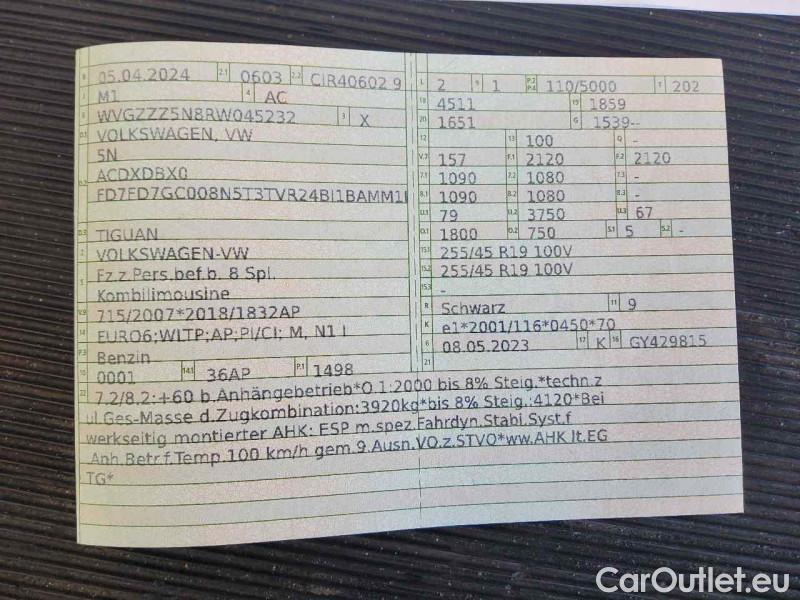 B 05.04.2024 2.1 0603 2.2 CIR40602 9
J M1 4 AC
E WVGZZZ5N8RW045232 3 X
D.1 VOLKSWAGEN, VW
5N
D.2 ACDXDBX0
FD7FD7GC008N5T3TVR24BI1BAMM1I
D.3 TIGUAN
2 VOLKSWAGEN-VW
5 Fz.z.Pers.bef.b. 8 Spl.
Kombilimousine
V.9 715/2007*2018/1832AP
14 EURO6;WLTP;AP;PI/CI; M, N1 I
P.3 Benzin
10 0001 14.1 36AP P.1 1498
22 7.2/8.2:+60 b.Anhängebetrieb*O.1:2000 bis 8% Steig.*techn.z
ul.Ges-Masse d.Zugkombination:3920kg*bis 8% Steig.:4120*Bei
werkseitig montierter AHK: ESP m.spez.Fahrdyn.Stabi.Syst.f
.Anh.Betr.f.Temp.100 km/h gem.9.Ausn.VO.z.STVO*ww.AHK lt.EG
TG*
L 2 9 1 P.2 P.4 110/5000 T 202
18 4511 19 1859
20 1651 G 1539--
12 13 100 Q -
V.7 157 F.1 2120 F.2 2120
7.1 1090 7.2 1080 7.3 -
8.1 1090 8.2 1080 8.3 -
U.1 79 U.2 3750 U.3 67
O.1 1800 O.2 750 S.1 5 S.2 -
15.1 255/45 R19 100V
15.2 255/45 R19 100V
15.3 -
R Schwarz 11 9
K e1*2001/116*0450*70
6 08.05.2023 17 K 16 GY429815
21
CarOutlet.eu